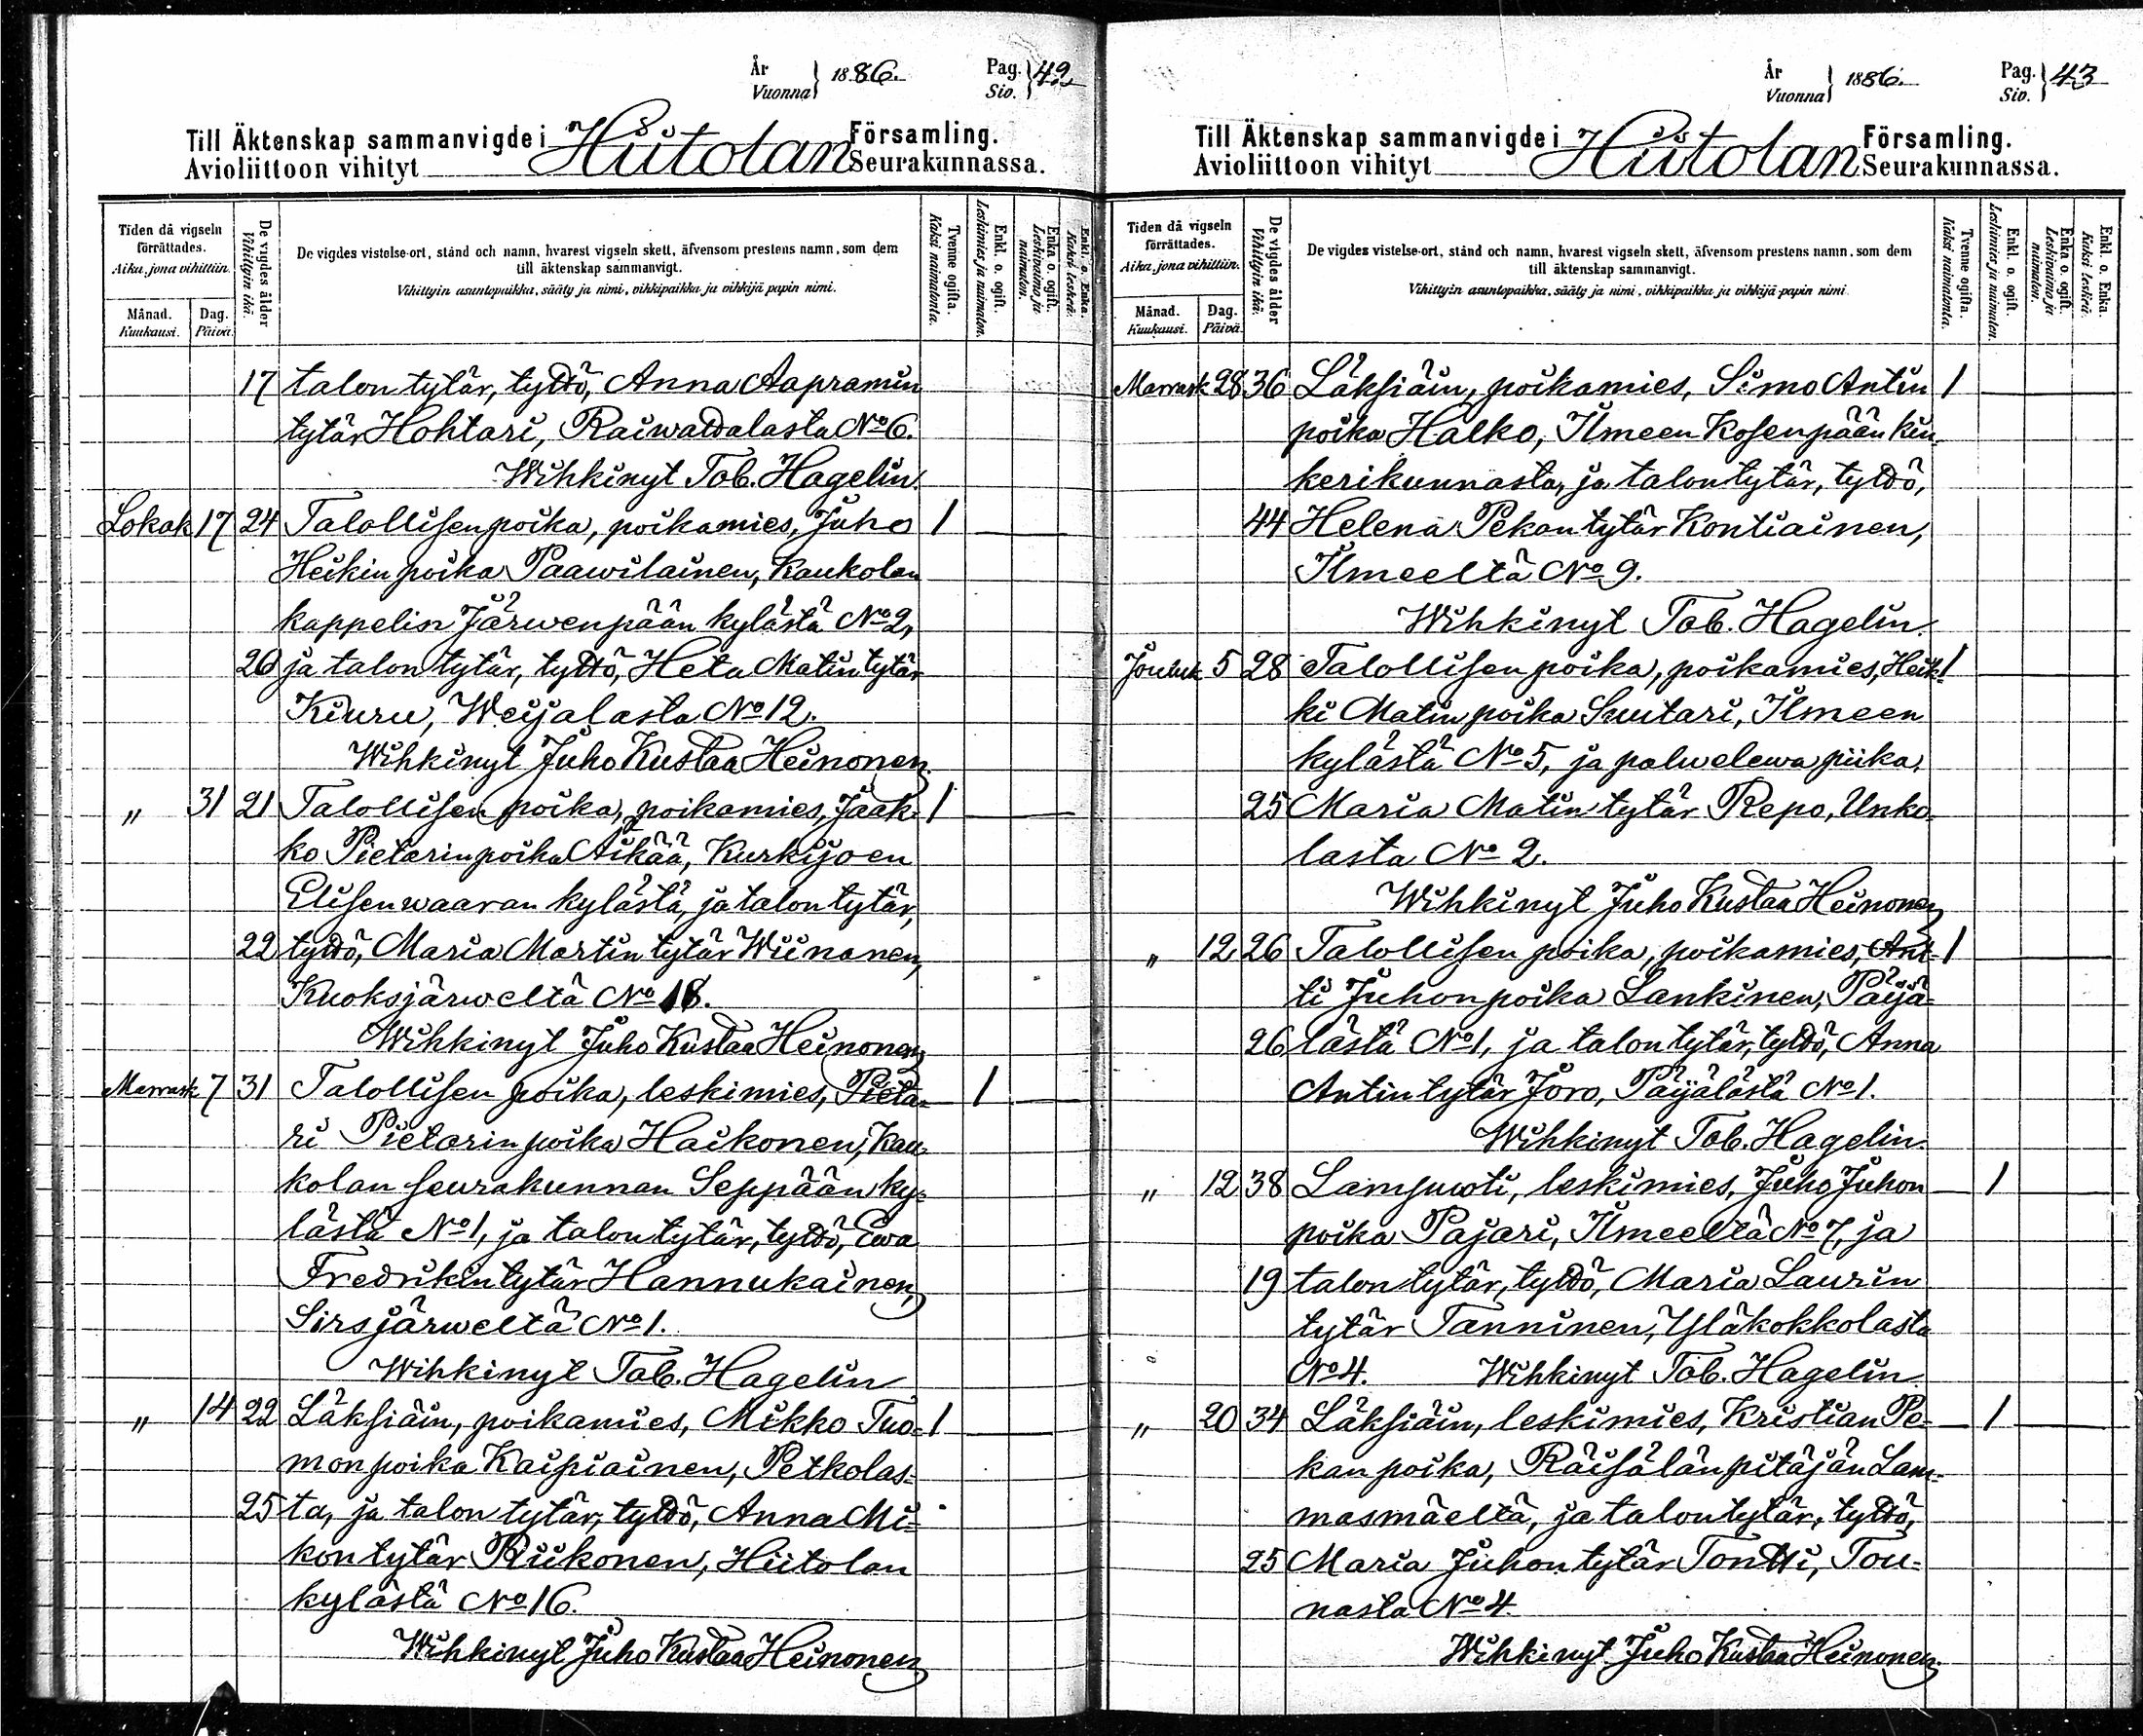 År
Vuonna} 1886.
Pag.
Siv.} 42
Till Äktenskap sammanvigde i Hiitolan Församling.
Avioliittoon vihityt Seurakunnassa.
Tiden då vigseln förrättades.
Aika, jona vihittiin.
Månad. Kuukausi.
Dag. Päivä.
De vigdes ålder
Vihittyin ikä.
De vigdes vistelse-ort, stånd och namn, hvarest vigseln skett, äfvensom prestens namn, som dem
till äktenskap sammanvigt.
Vihittyin asuntopaikka, sääty ja nimi, vihkipaikka ja vihkijä papin nimi.
Tvenne ogifta.
Kaksi naimatonta.
Enkl. o. ogift.
Leskimies ja naimaton.
Enka o. ogift.
Leskivaimo ja naimaton.
Enkl. o. Enka.
Kaksi leskeä.
17 talon tytär, tyttö, Anna Aapramin
tytär Hohtari, Raiwattalasta No 6.
Wihkinyt Tob. Hagelin.
Lokak 17 24 Talollisen poika, poikamies, Juho 1
Heikin poika Paawilainen, Kaukolan
kappelin Järwenpään kylästä No 2,
20 ja talon tytär, tyttö, Heta Matin tytär
Kiuru, Weijalasta No 12.
Wihkinyt Juho Kustaa Heinonen.
" 31 21 Talollisen poika, poikamies, Jaak- 1
ko Pietarin poika Äikää, Kurkijoen
Elisenwaaran kylästä, ja talon tytär,
22 tyttö, Maria Martin tytär Wiinanen,
Kuoksjärweltä No 18.
Wihkinyt Juho Kustaa Heinonen
Marrask 7 31 Talollisen poika, leskimies, Pieta- 1
ri Pietarin poika Haikonen, Kau-
kolan seurakunnan Seppään ky-
lästä No 1, ja talon tytär, tyttö, Ewa
Fredrikin tytär Hannukainen,
Sirsjärweltä No 1.
Wihkinyt Tob. Hagelin
" 14 22 Läksiäin, poikamies, Mikko Tuo- 1
mon poika Kaipiainen, Petkolas-
25 ta, ja talon tytär, tyttö, Anna Mi-
kon tytär Riikonen, Hiitolan
kylästä No 16.
Wihkinyt Juho Kustaa Heinonen
År
Vuonna} 1886.
Pag.
Siv.} 43
Till Äktenskap sammanvigde i Hiitolan Församling.
Avioliittoon vihityt Seurakunnassa.
Tiden då vigseln förrättades.
Aika, jona vihittiin.
Månad. Kuukausi.
Dag. Päivä.
De vigdes ålder
Vihittyin ikä.
De vigdes vistelse-ort, stånd och namn, hvarest vigseln skett, äfvensom prestens namn, som dem
till äktenskap sammanvigt.
Vihittyin asuntopaikka, sääty ja nimi, vihkipaikka ja vihkijä papin nimi.
Tvenne ogifta.
Kaksi naimatonta.
Enkl. o. ogift.
Leskimies ja naimaton.
Enka o. ogift.
Leskivaimo ja naimaton.
Enkl. o. Enka.
Kaksi leskeä.
Marrask 28 36 Läksiäin, poikamies, Simo Antin 1
poika Halko, Ilmeen Kosenpään kin-
kerikunnasta, ja talon tytär, tyttö,
44 Helena Pekan tytär Kontiainen,
Ilmeeltä No 9.
Wihkinyt Tob. Hagelin.
Jouluk 5 28 Talollisen poika, poikamies, Heik- 1
ki Matin poika Suutari, Ilmeen
kylästä No 5, ja palwelewa piika,
25 Maria Matin tytär Repo, Unko-
lasta No 2.
Wihkinyt Juho Kustaa Heinonen
" 12 26 Talollisen poika, poikamies, Ant- 1
ti Juhon poika Lankinen, Päijä-
26 lästä No 1, ja talon tytär, tyttö, Anna
Antin tytär Joro, Päijälästä No 1.
Wihkinyt Tob. Hagelin.
" 12 38 Lampuoti, leskimies, Juho Juhon 1
poika Pajari, Ilmeeltä No 7, ja
19 talon tytär, tyttö, Maria Laurin
tytär Tanninen, Yläkokkolasta
No 4. Wihkinyt Tob. Hagelin.
" 20 34 Läksiäin, leskimies, Kristian Pe- 1
kan poika, Räisälän pitäjän Lam-
masmäeltä, ja talon tytär, tyttö,
25 Maria Juhon tytär Tontti, Tou-
nasta No 4.
Wihkinyt Juho Kustaa Heinonen.